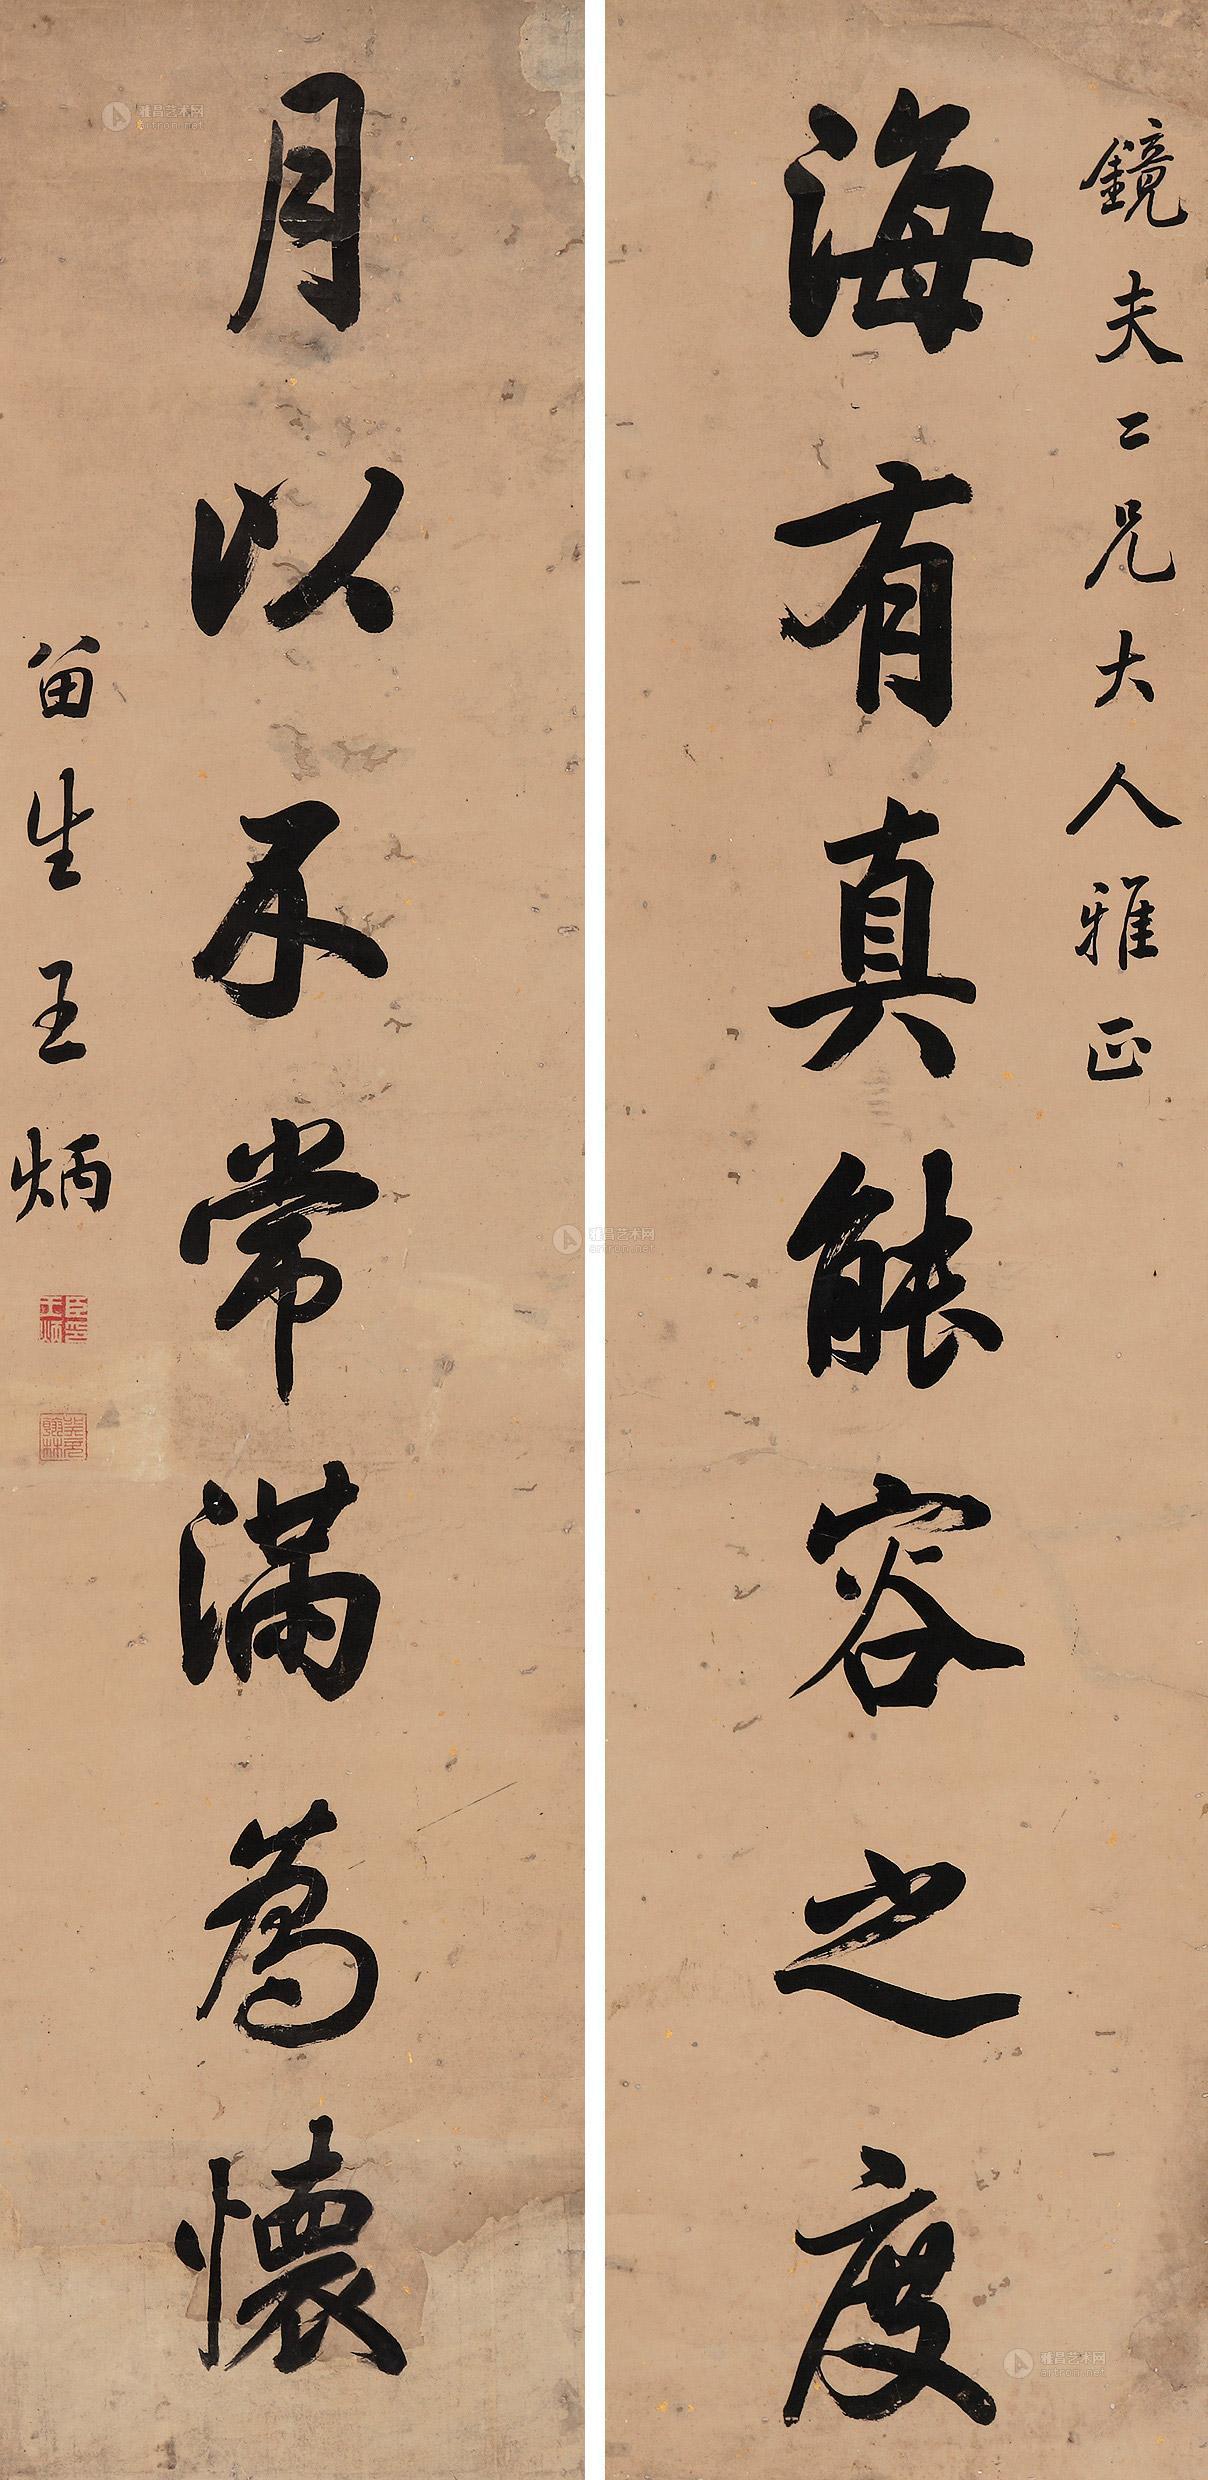 鏡夫二兄大人雅正
海有真能容之度
月以不常滿為懷
笛生王炳
雅昌艺术网
artron.net
雅昌艺术网
artron.net
雅昌艺术网
artron.net